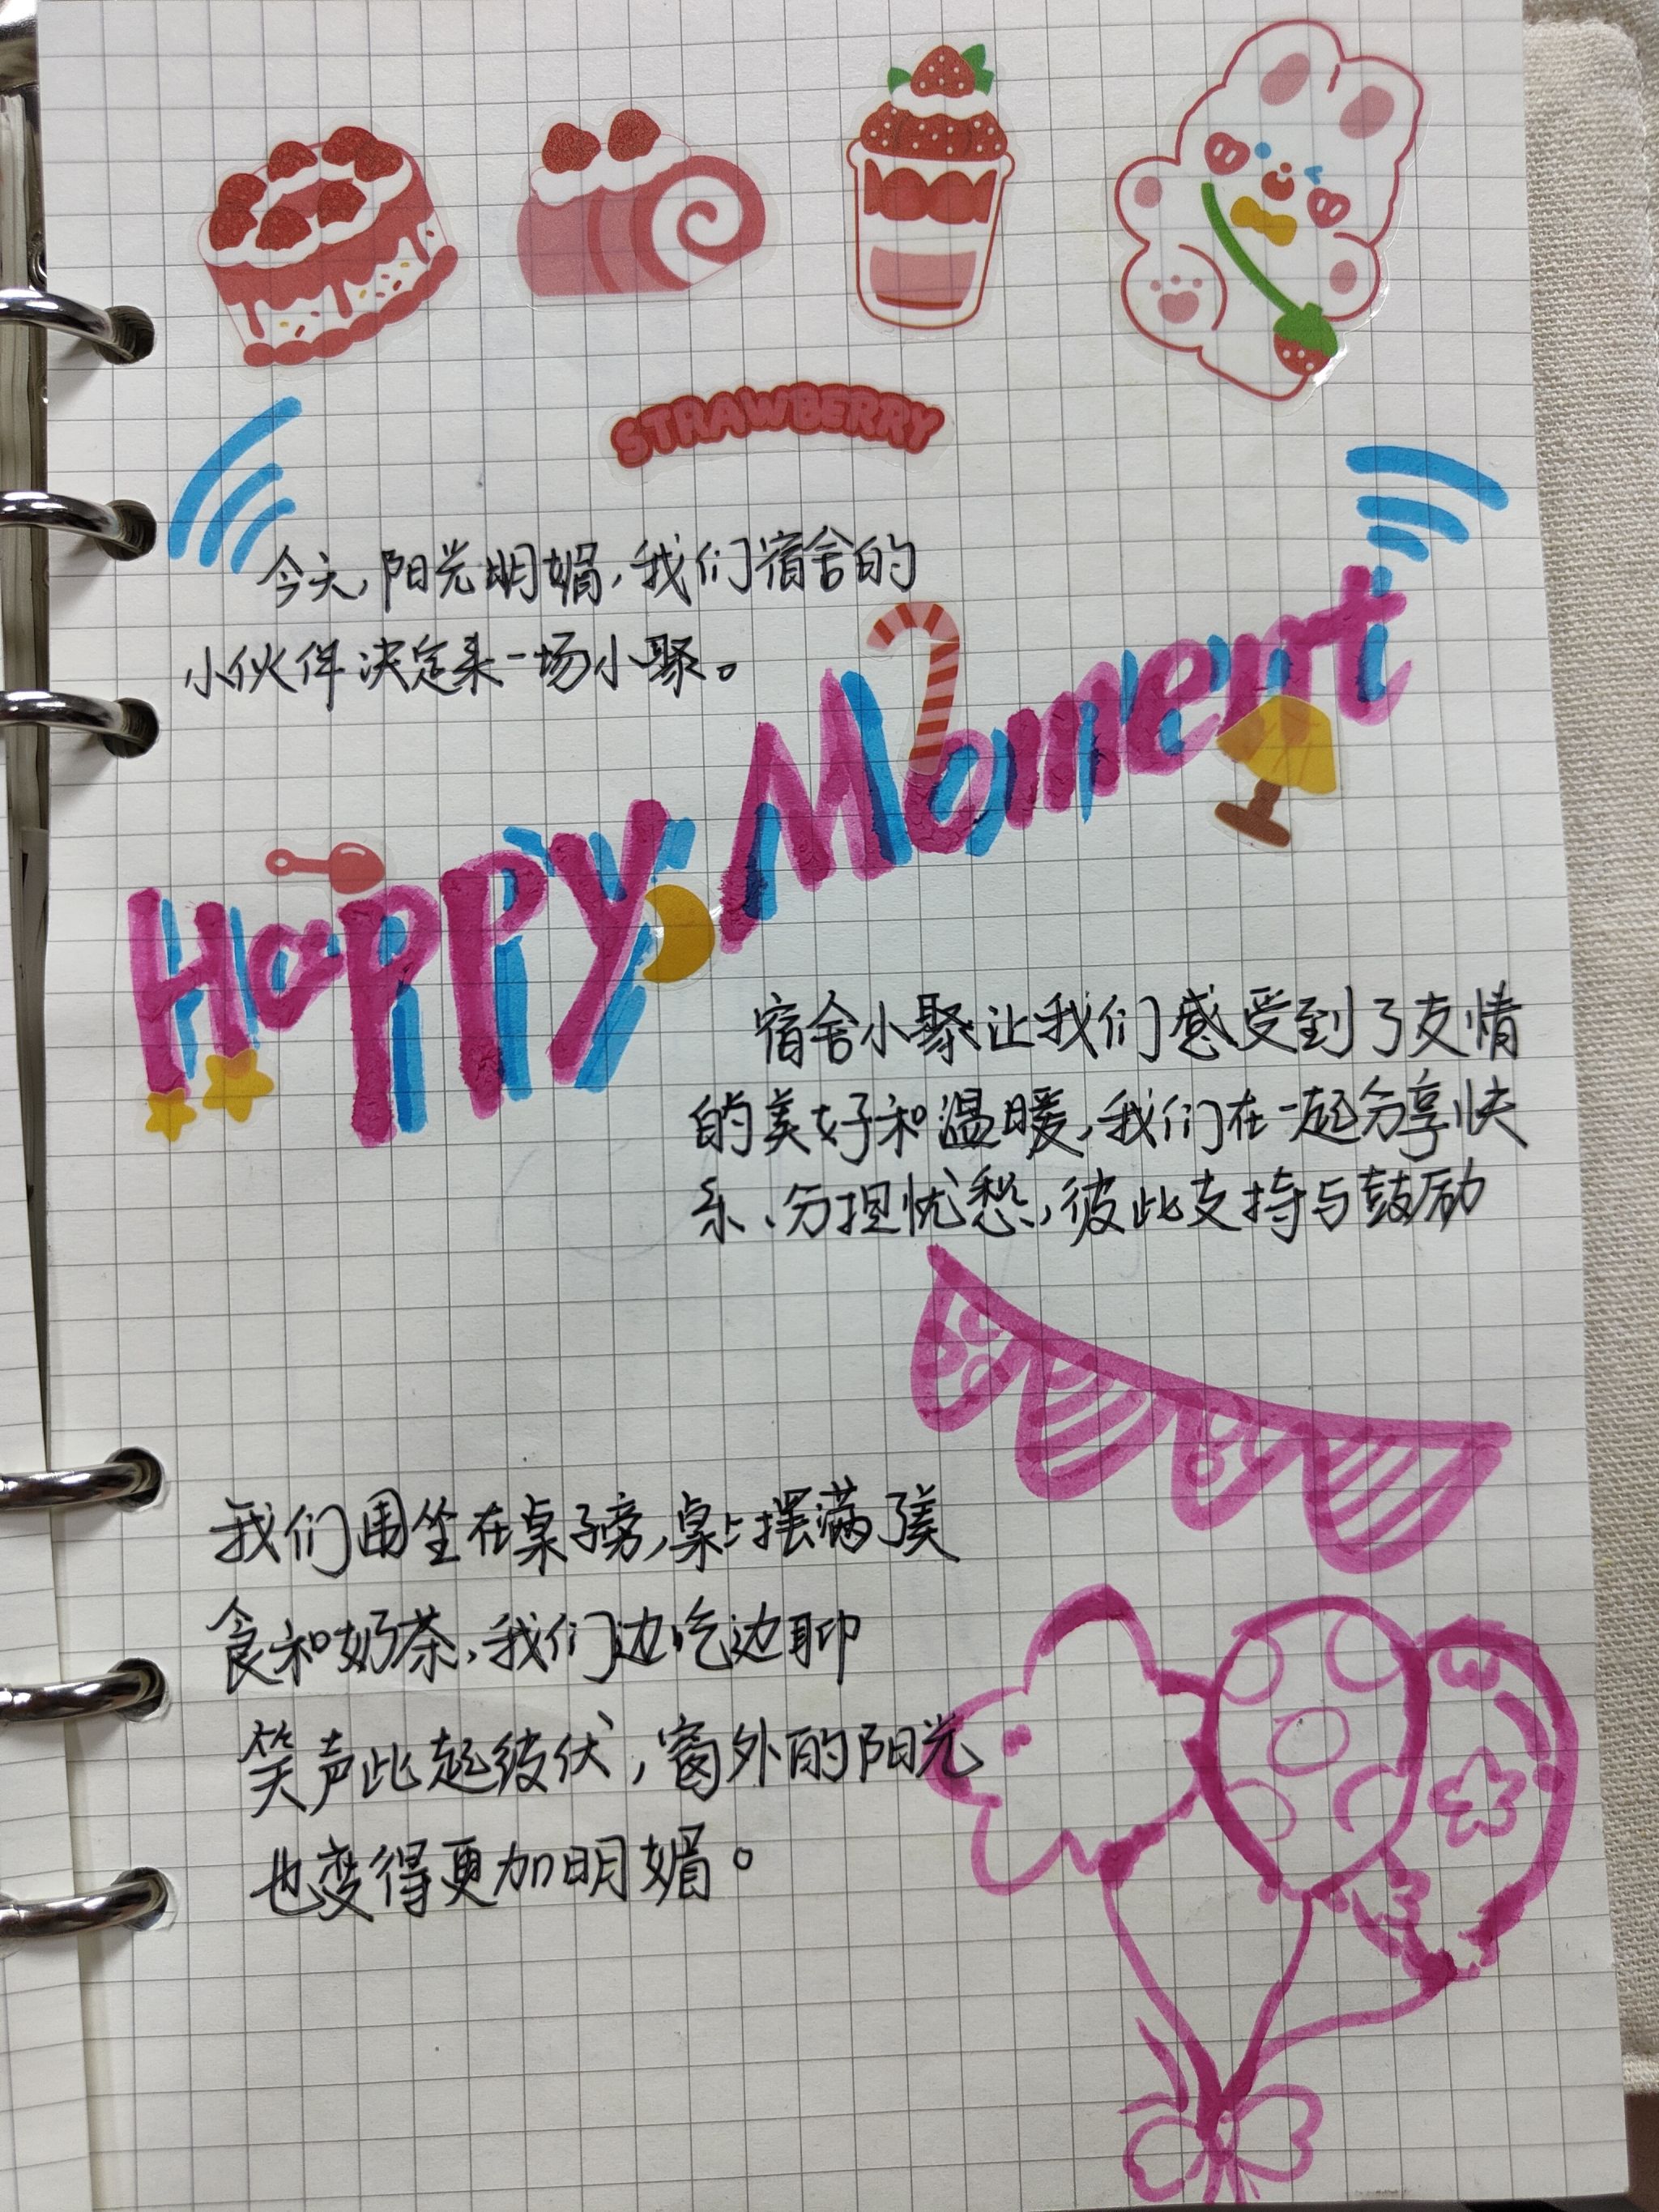 STRAWBERRY
今天,阳光明媚,我们宿舍的
小伙伴决定来一场小聚。
Happy Moment
宿舍小聚让我们感受到了友情
的美好和温暖,我们在一起分享快
乐、分担忧愁,彼此支持与鼓励
我们围坐在桌子旁,桌上摆满了美
食和奶茶,我们边吃边聊
笑声此起彼伏,窗外的阳光
也变得更加明媚。